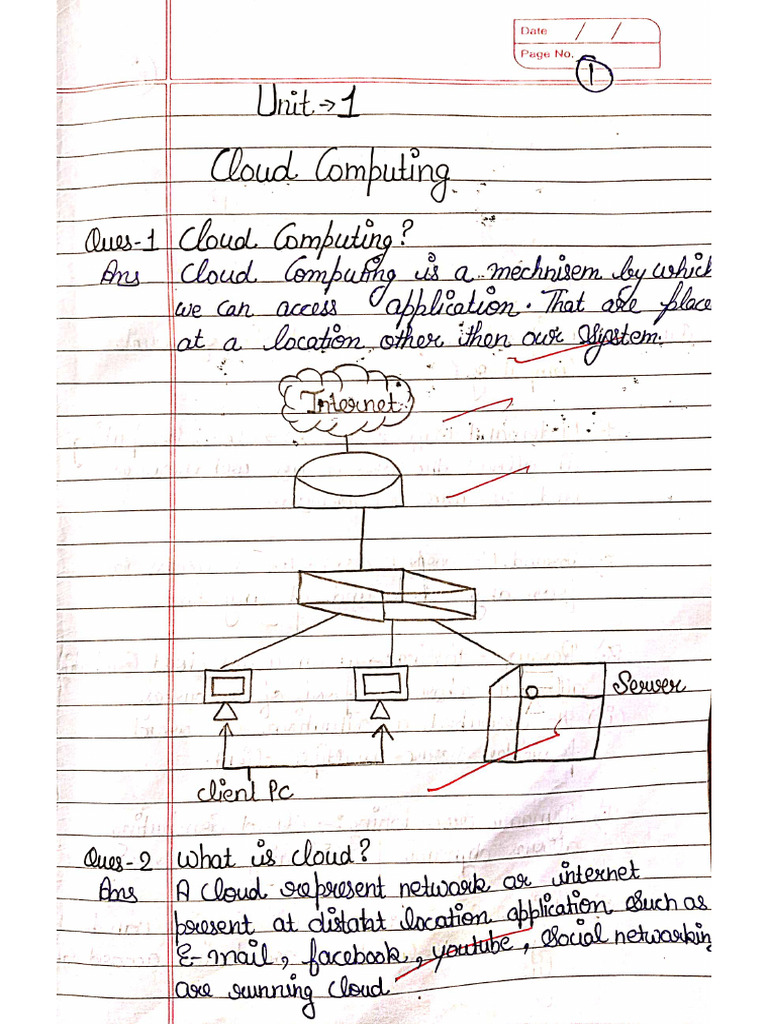 Date / /
Page No. 1
Unit → 1
Cloud Computing
Ques-1 Cloud Computing?
Ans Cloud Computing is a mechnisem by which
we can access application. That are place
at a location other then our system.
Internet
Server
Client PC
Ques-2 What is cloud?
Ans A Cloud represent network or internet
present at distatnt location application such as
E-mail, facebook, youtube, social networking
are running cloud